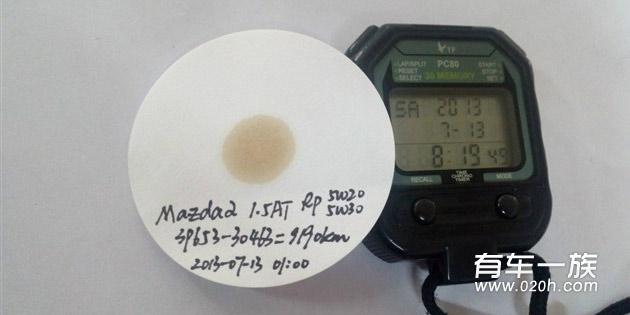 Mazda2 1.5AT RP 5W20
5W30
39653-30463=9190km
2013-07-13 01:00
YF
LAP/SPLIT
RESET
SELECT
PC80
30 MEMORY
START
STOP
SET
SA 2013
7-13
8:19 49
RECALL
TIME
CHRONO
TIMER
MODE
有车一族
www.020h.com